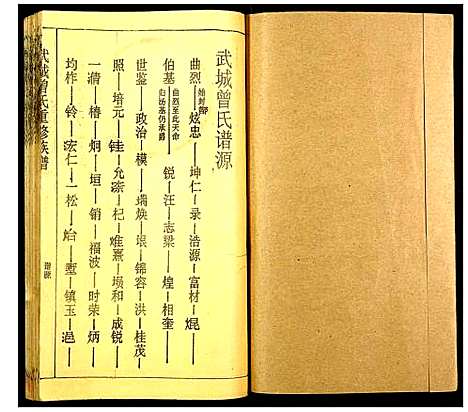 武城曾氏谱源
曲烈 始封鄫 炫忠 坤仁 录 浩源 富材 焜
伯基 曲烈至此天命归汤基仍承爵 锐 汪 志梁 煌 相奎
世鉴 政治 模 焕 垠 锦容 洪 桂茂
照 培元 钰 允 杞 熹 埙 和 成锐
一清 椿 炯 垣 销 福波 时荣 炳
均柞 铃 宏仁 一松 炲 玺 镇玉 邑
武城曾氏重修族谱
谱源